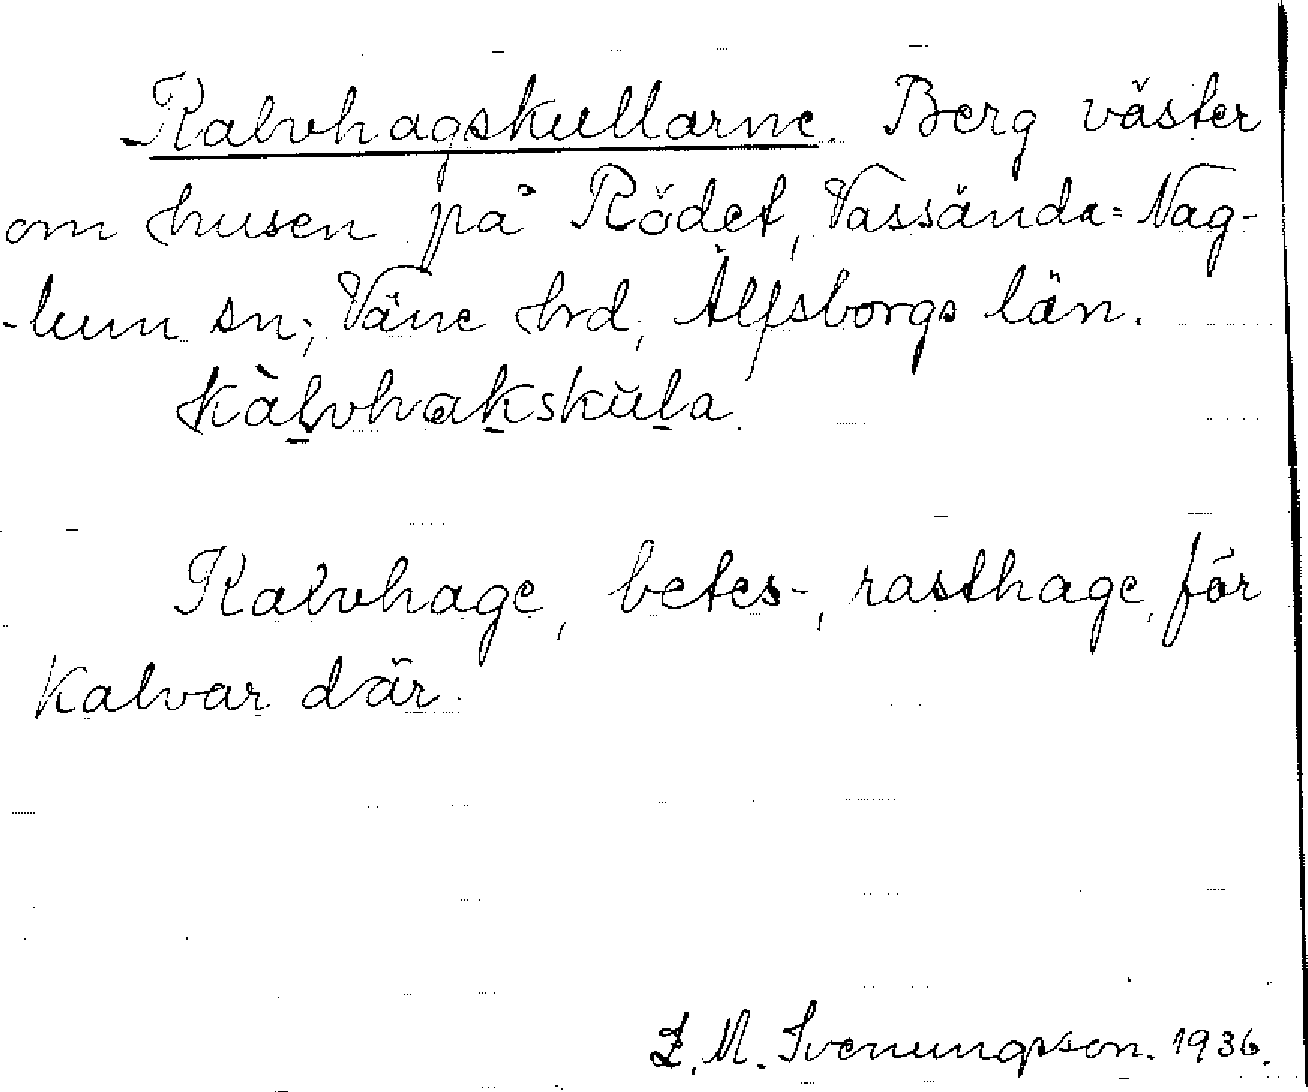 Kalvhagskullarne. Berg väster
om husen på Rödet, Vassända=Nag-
-lum sn; Väne hrd, Älfsborgs län.
kàlvhakskŭla.
Kalvhage, betes-, rasthage, för
kalvar där.
M. Svenungsson. 1936.